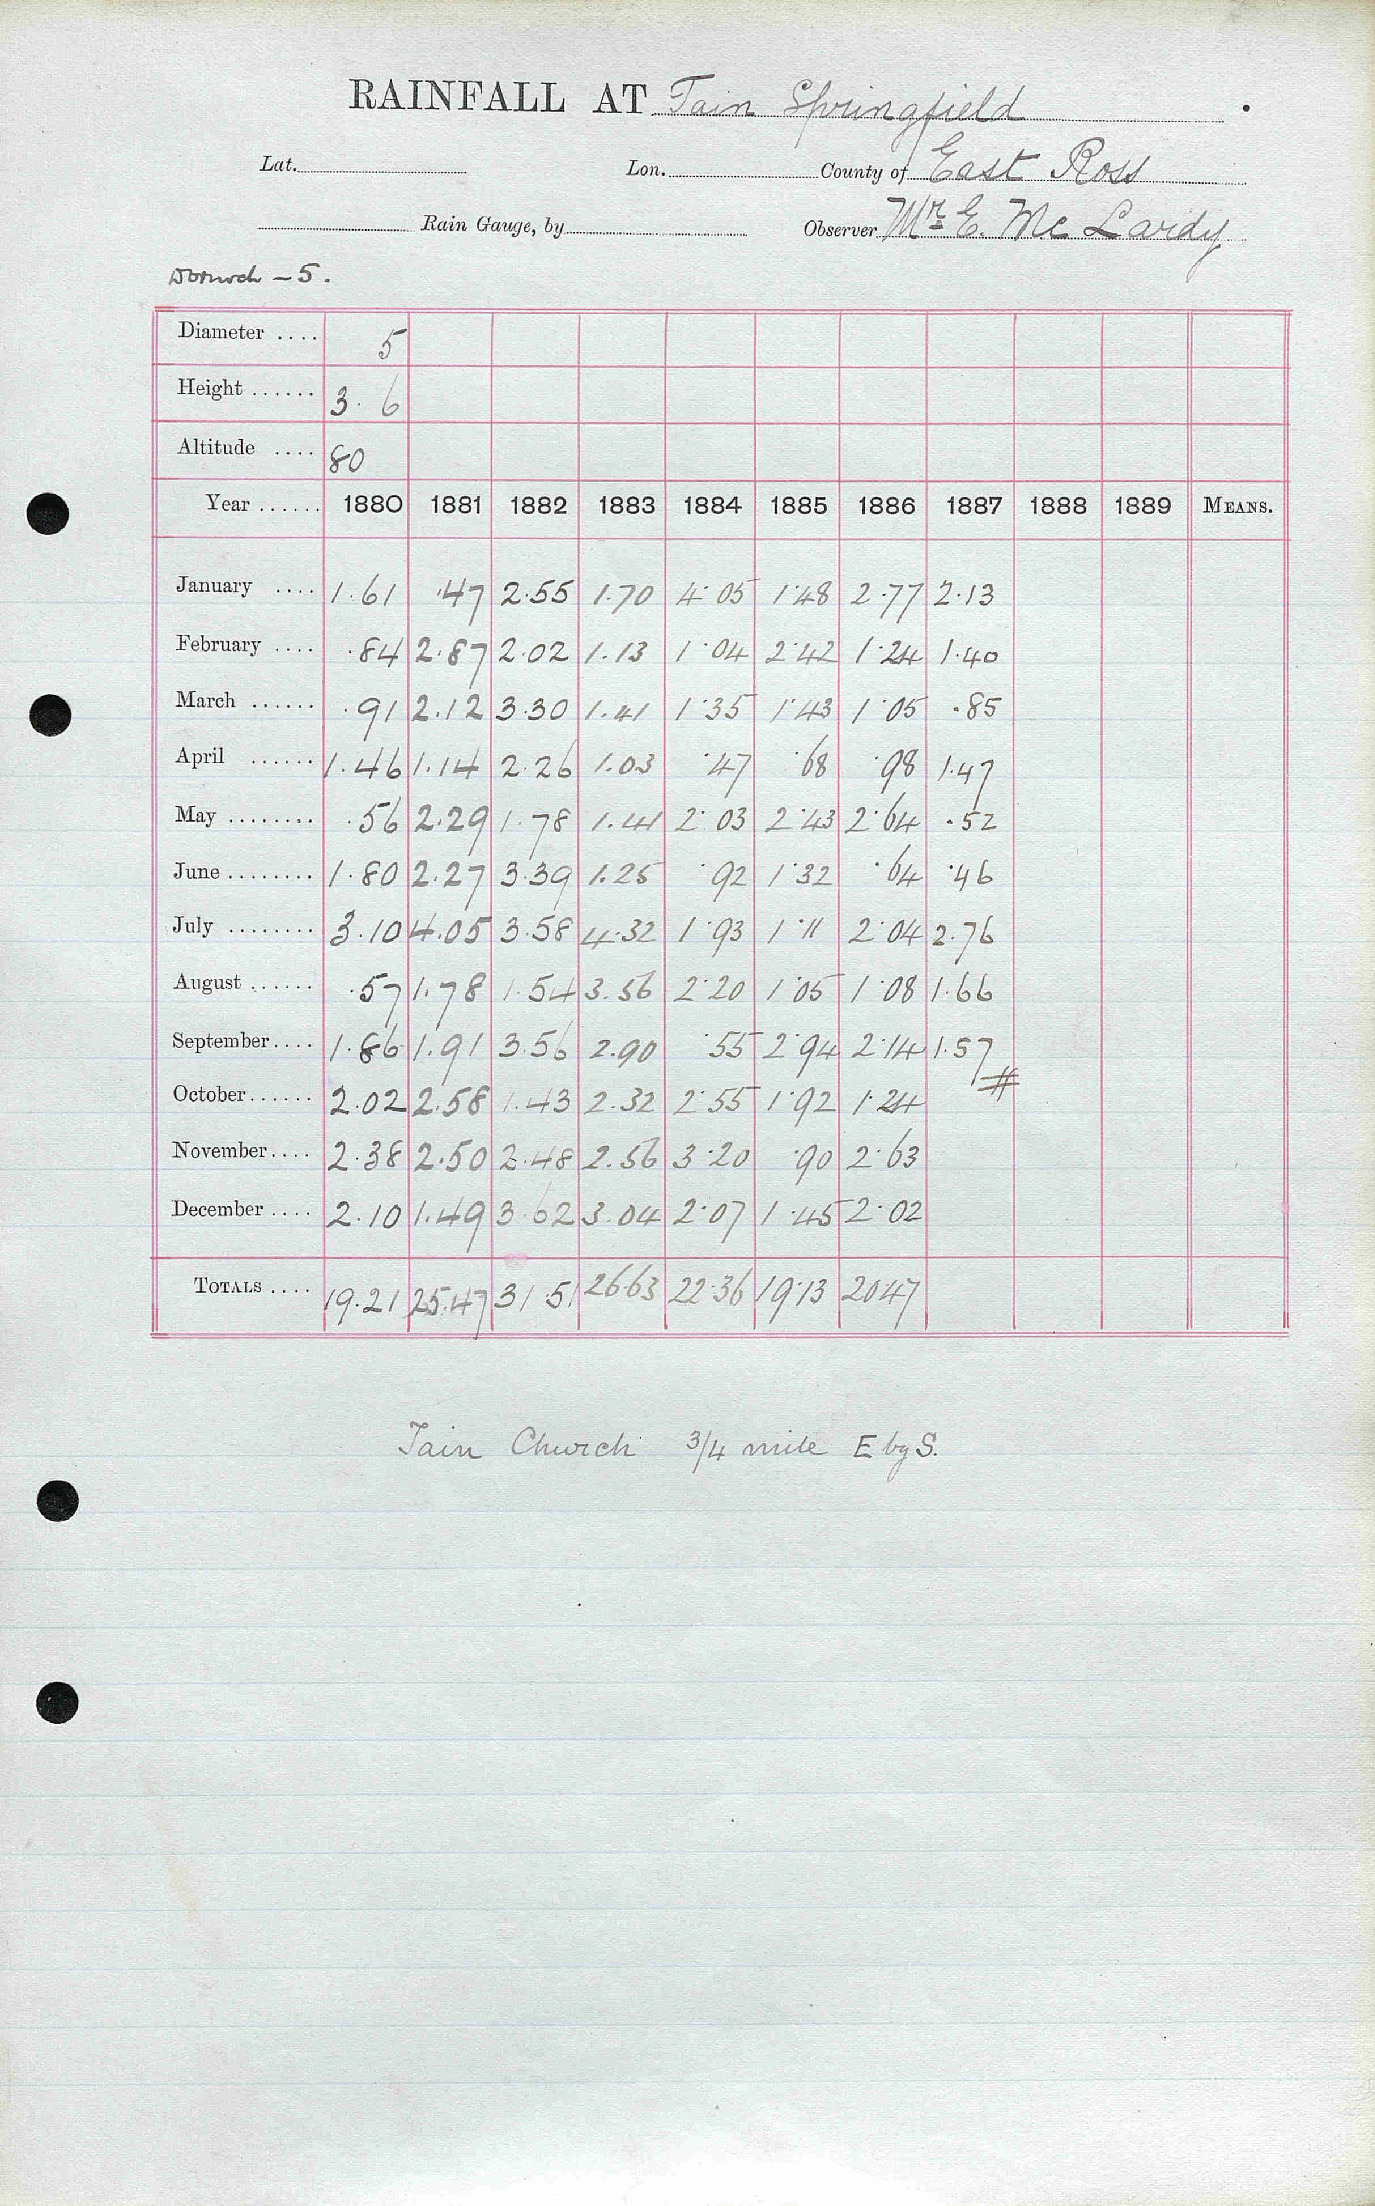 RAINFALL AT Tain Springfield .
Lat. Lon. County of East Ross
Rain Gauge, by Observer Mr. E. Mc Lardy
Dornoch - 5.
Diameter .... 5
Height ...... 3. 6
Altitude .... 80
Year ...... 1880 1881 1882 1883 1884 1885 1886 1887 1888 1889 MEANS.
January .... 1.61 .47 2.55 1.70 4.05 1.48 2.77 2.13
February .... .84 2.87 2.02 1.13 1.04 2.42 1.24 1.40
March ...... .91 2.12 3.30 1.41 1.35 1.43 1.05 .85
April ...... 1.46 1.14 2.26 1.03 .47 .68 .98 1.47
May ........ .56 2.29 1.78 1.41 2.03 2.43 2.64 .52
June ........ 1.80 2.27 3.39 1.25 .92 1.32 .64 .46
July ........ 3.10 4.05 3.58 4.32 1.93 1.11 2.04 2.76
August ...... .57 1.78 1.54 3.56 2.20 1.05 1.08 1.66
September .... 1.86 1.91 3.56 2.90 .55 2.94 2.14 1.57
October ...... 2.02 2.58 1.43 2.32 2.55 1.92 1.24 #
November .... 2.38 2.50 2.48 2.56 3.20 .90 2.63
December .... 2.10 1.49 3.62 3.04 2.07 1.45 2.02
TOTALS .... 19.21 25.47 31.51 26.63 22.36 19.13 20.47
Tain Church 3/4 mile E by S.